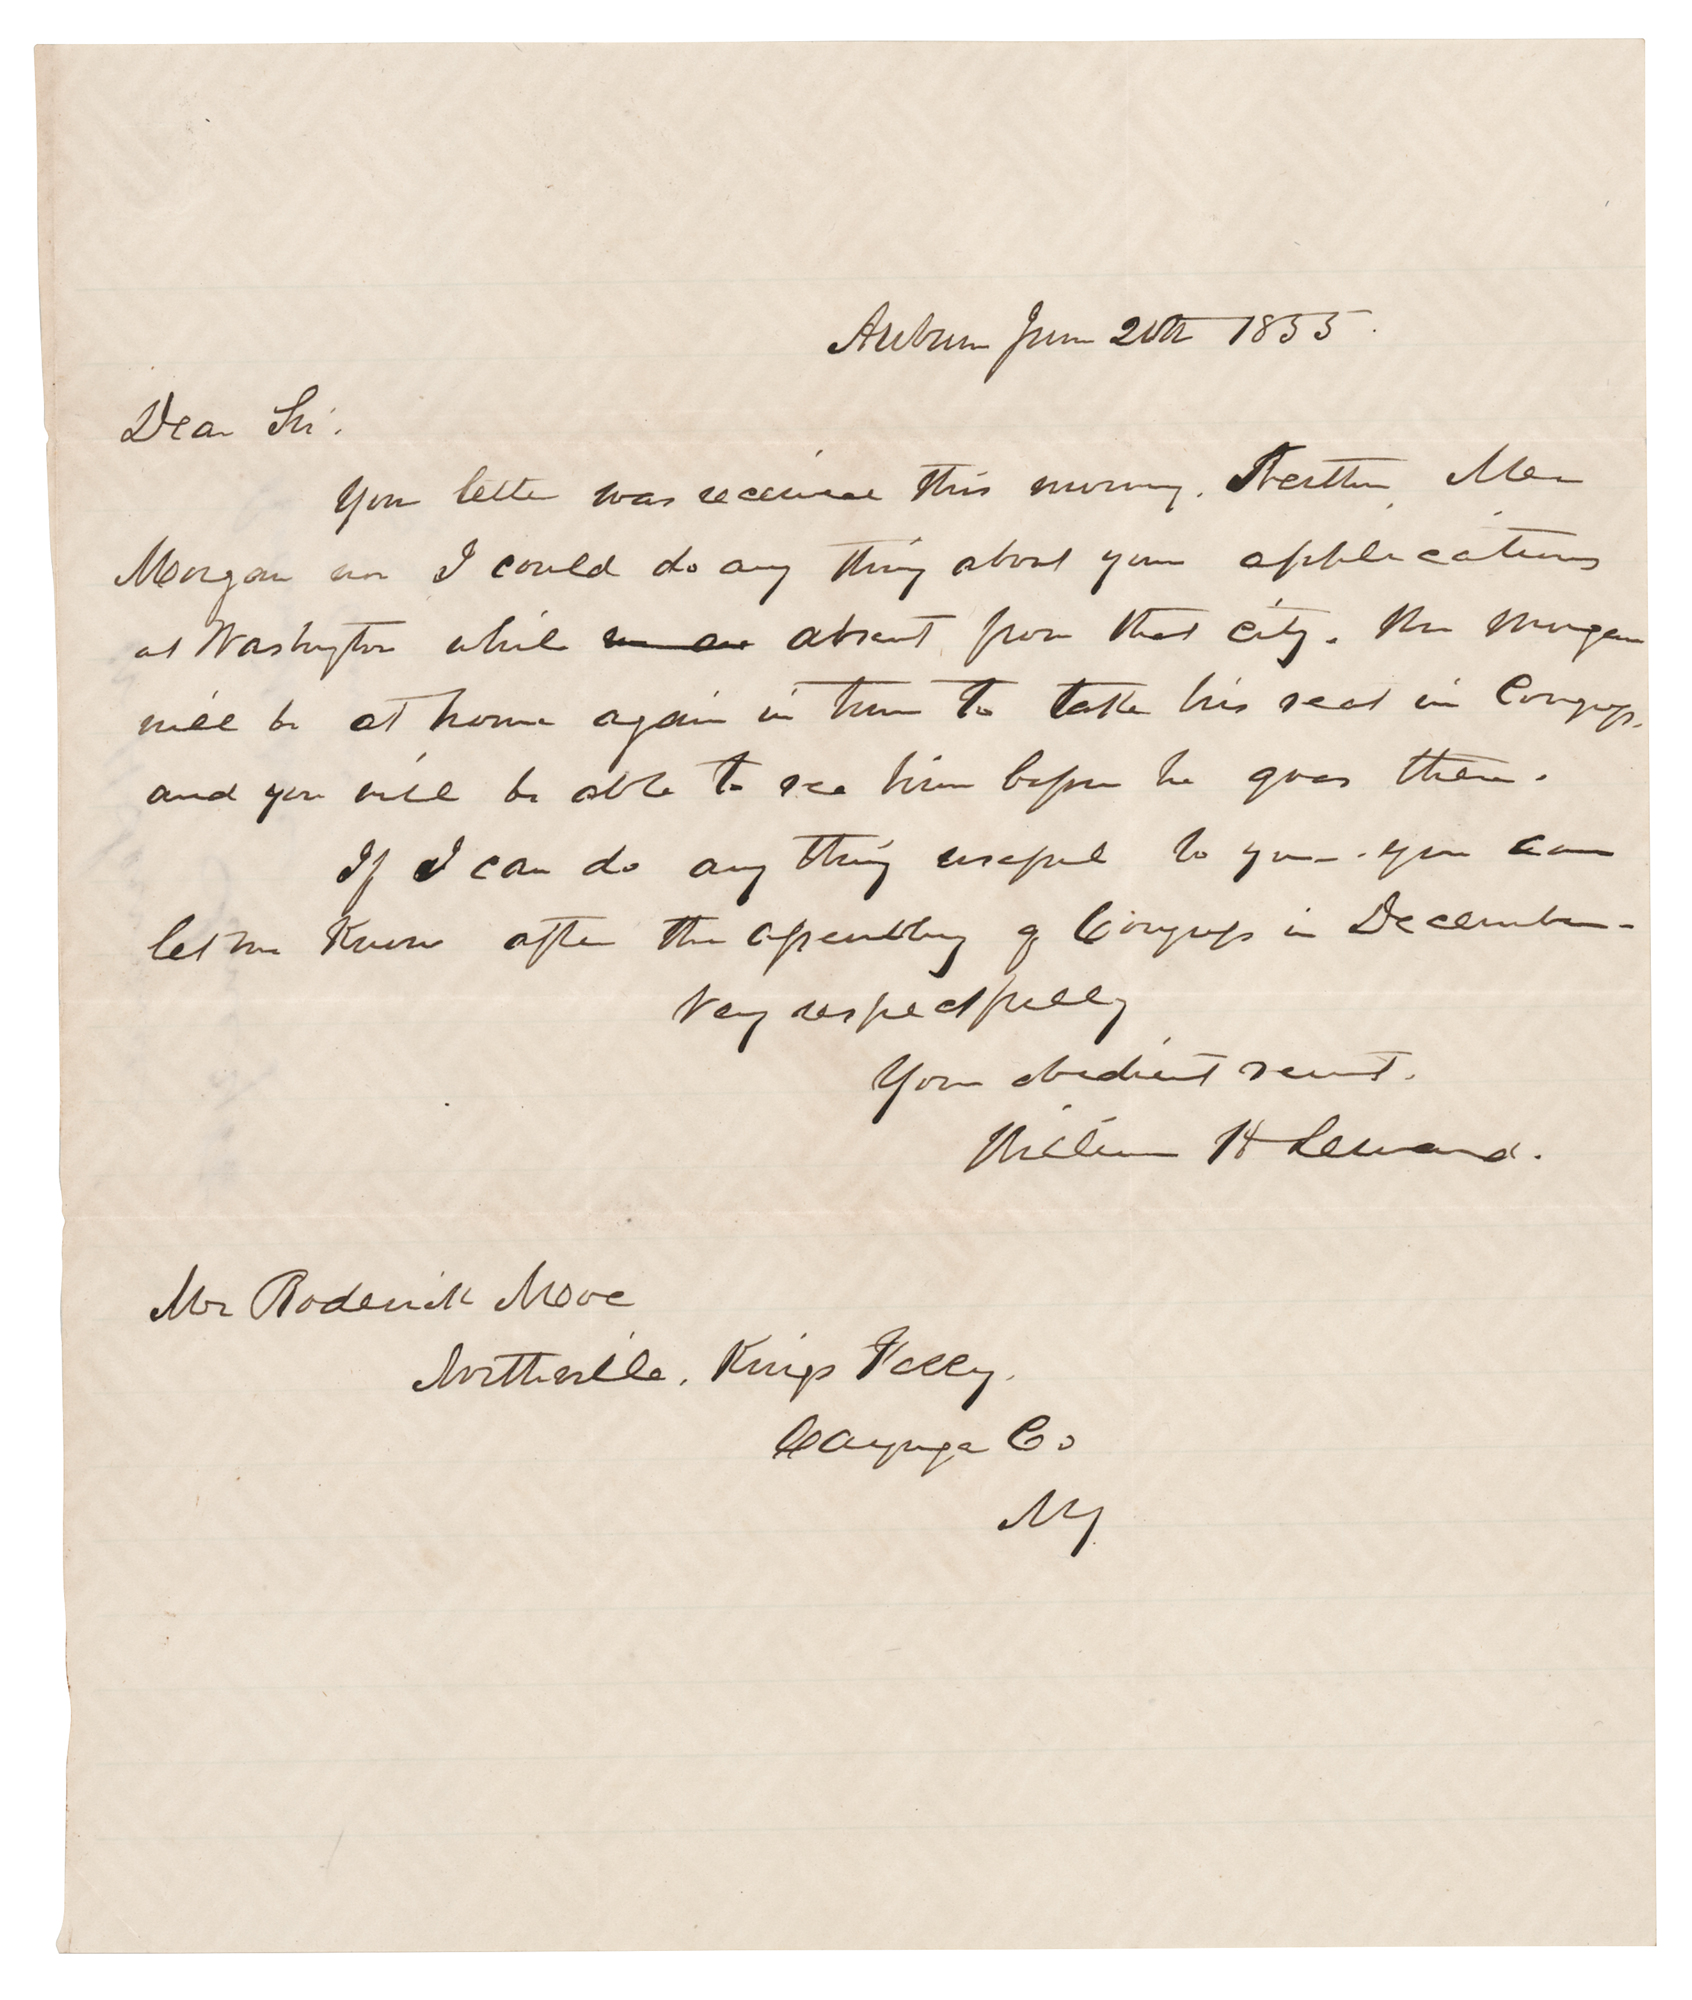 Auburn June 20th 1855.
Dear Sir.
Your letter was received this morning. Neither Mr
Morgan nor I could do any thing about your applications
at Washington while we are absent from that city. Mr Morgan
will be at home again in time to take his seat in Congress.
and you will be able to see him before he goes there.
If I can do any thing useful to you - you can
let me know after the assembling of Congress in December -
Very respectfully
Your obedient servt.
William H Seward.
Mr Roderick Move
Northville. Kings Ferry.
Cayuga Co
NY.